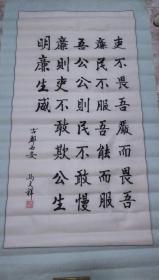 吏不畏吾嚴而畏吾
廉民不服吾能而服
吾公公則民不敢慢
廉則吏不敢欺公生
明廉生威
古都西安